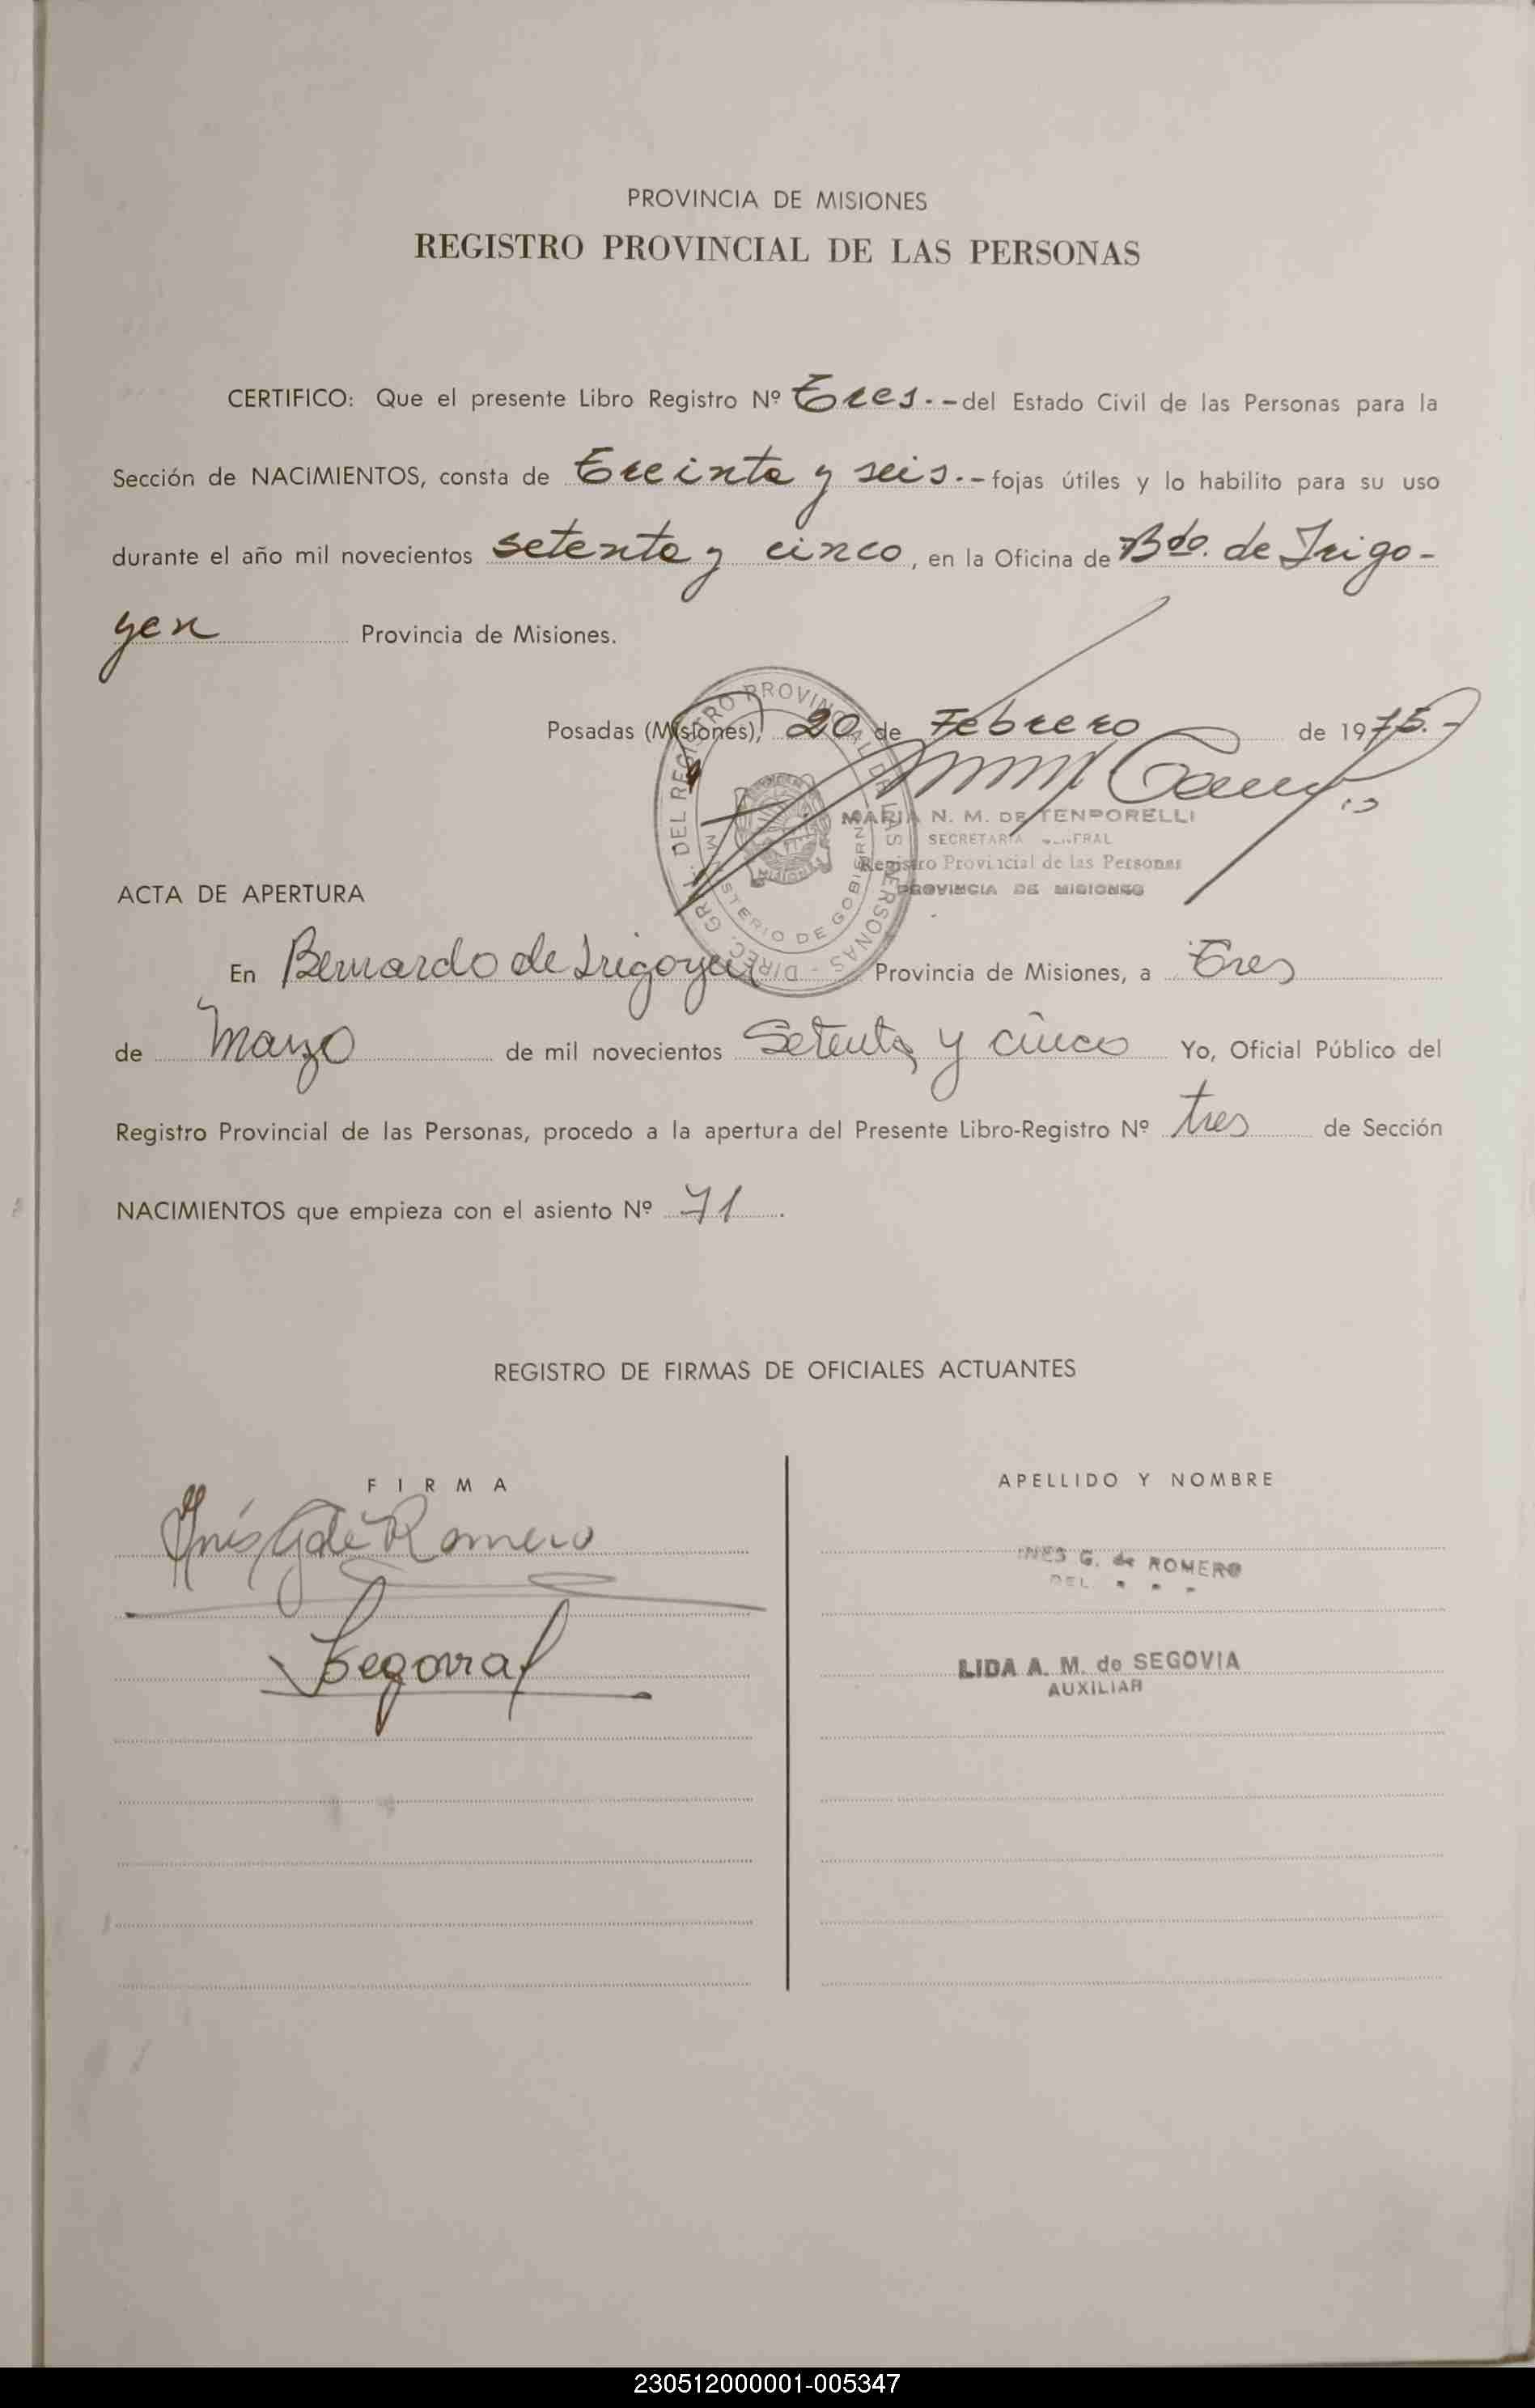 PROVINCIA DE MISIONES
REGISTRO PROVINCIAL DE LAS PERSONAS
CERTIFICO: Que el presente Libro Registro Nº Tres.- del Estado Civil de las Personas para la
Sección de NACIMIENTOS, consta de Treinta y seis.- fojas útiles y lo habilito para su uso
durante el año mil novecientos setenta y cinco, en la Oficina de Bdo. de Irigo-
yen Provincia de Misiones.
Posadas (Misiones), 20 de Febrero de 1975.-
MARIA N. M. DE TENPORELLI
SECRETARIA
Registro Provincial de las Personas
PROVINCIA DE MISIONES
DIREC. GRL. DEL REGISTRO PROVINCIAL DE LAS PERSONAS -
MINISTERIO DE GOBIERNO
MISIONES
ACTA DE APERTURA
En Bernardo de Irigoyen Provincia de Misiones, a Tres
de Marzo de mil novecientos Setenta y cinco Yo, Oficial Público del
Registro Provincial de las Personas, procedo a la apertura del Presente Libro-Registro Nº tres de Sección
NACIMIENTOS que empieza con el asiento Nº 71.
REGISTRO DE FIRMAS DE OFICIALES ACTUANTES
FIRMA APELLIDO Y NOMBRE
Inés G de Romero INES G. de ROMERO
DEL.
Segovia LIDA A. M. de SEGOVIA
AUXILIAR
230512000001-005347